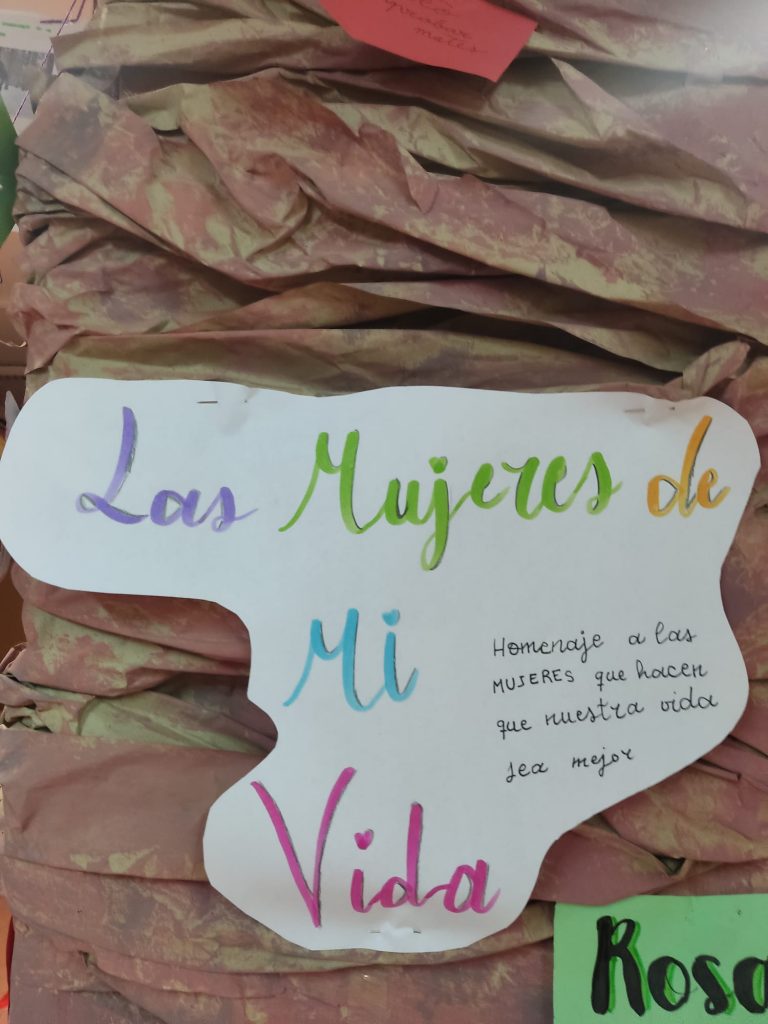 quebrar
males
Las Mujeres de
Mi
Vida
Homenaje a las
MUJERES que hacen
que nuestra vida
sea mejor